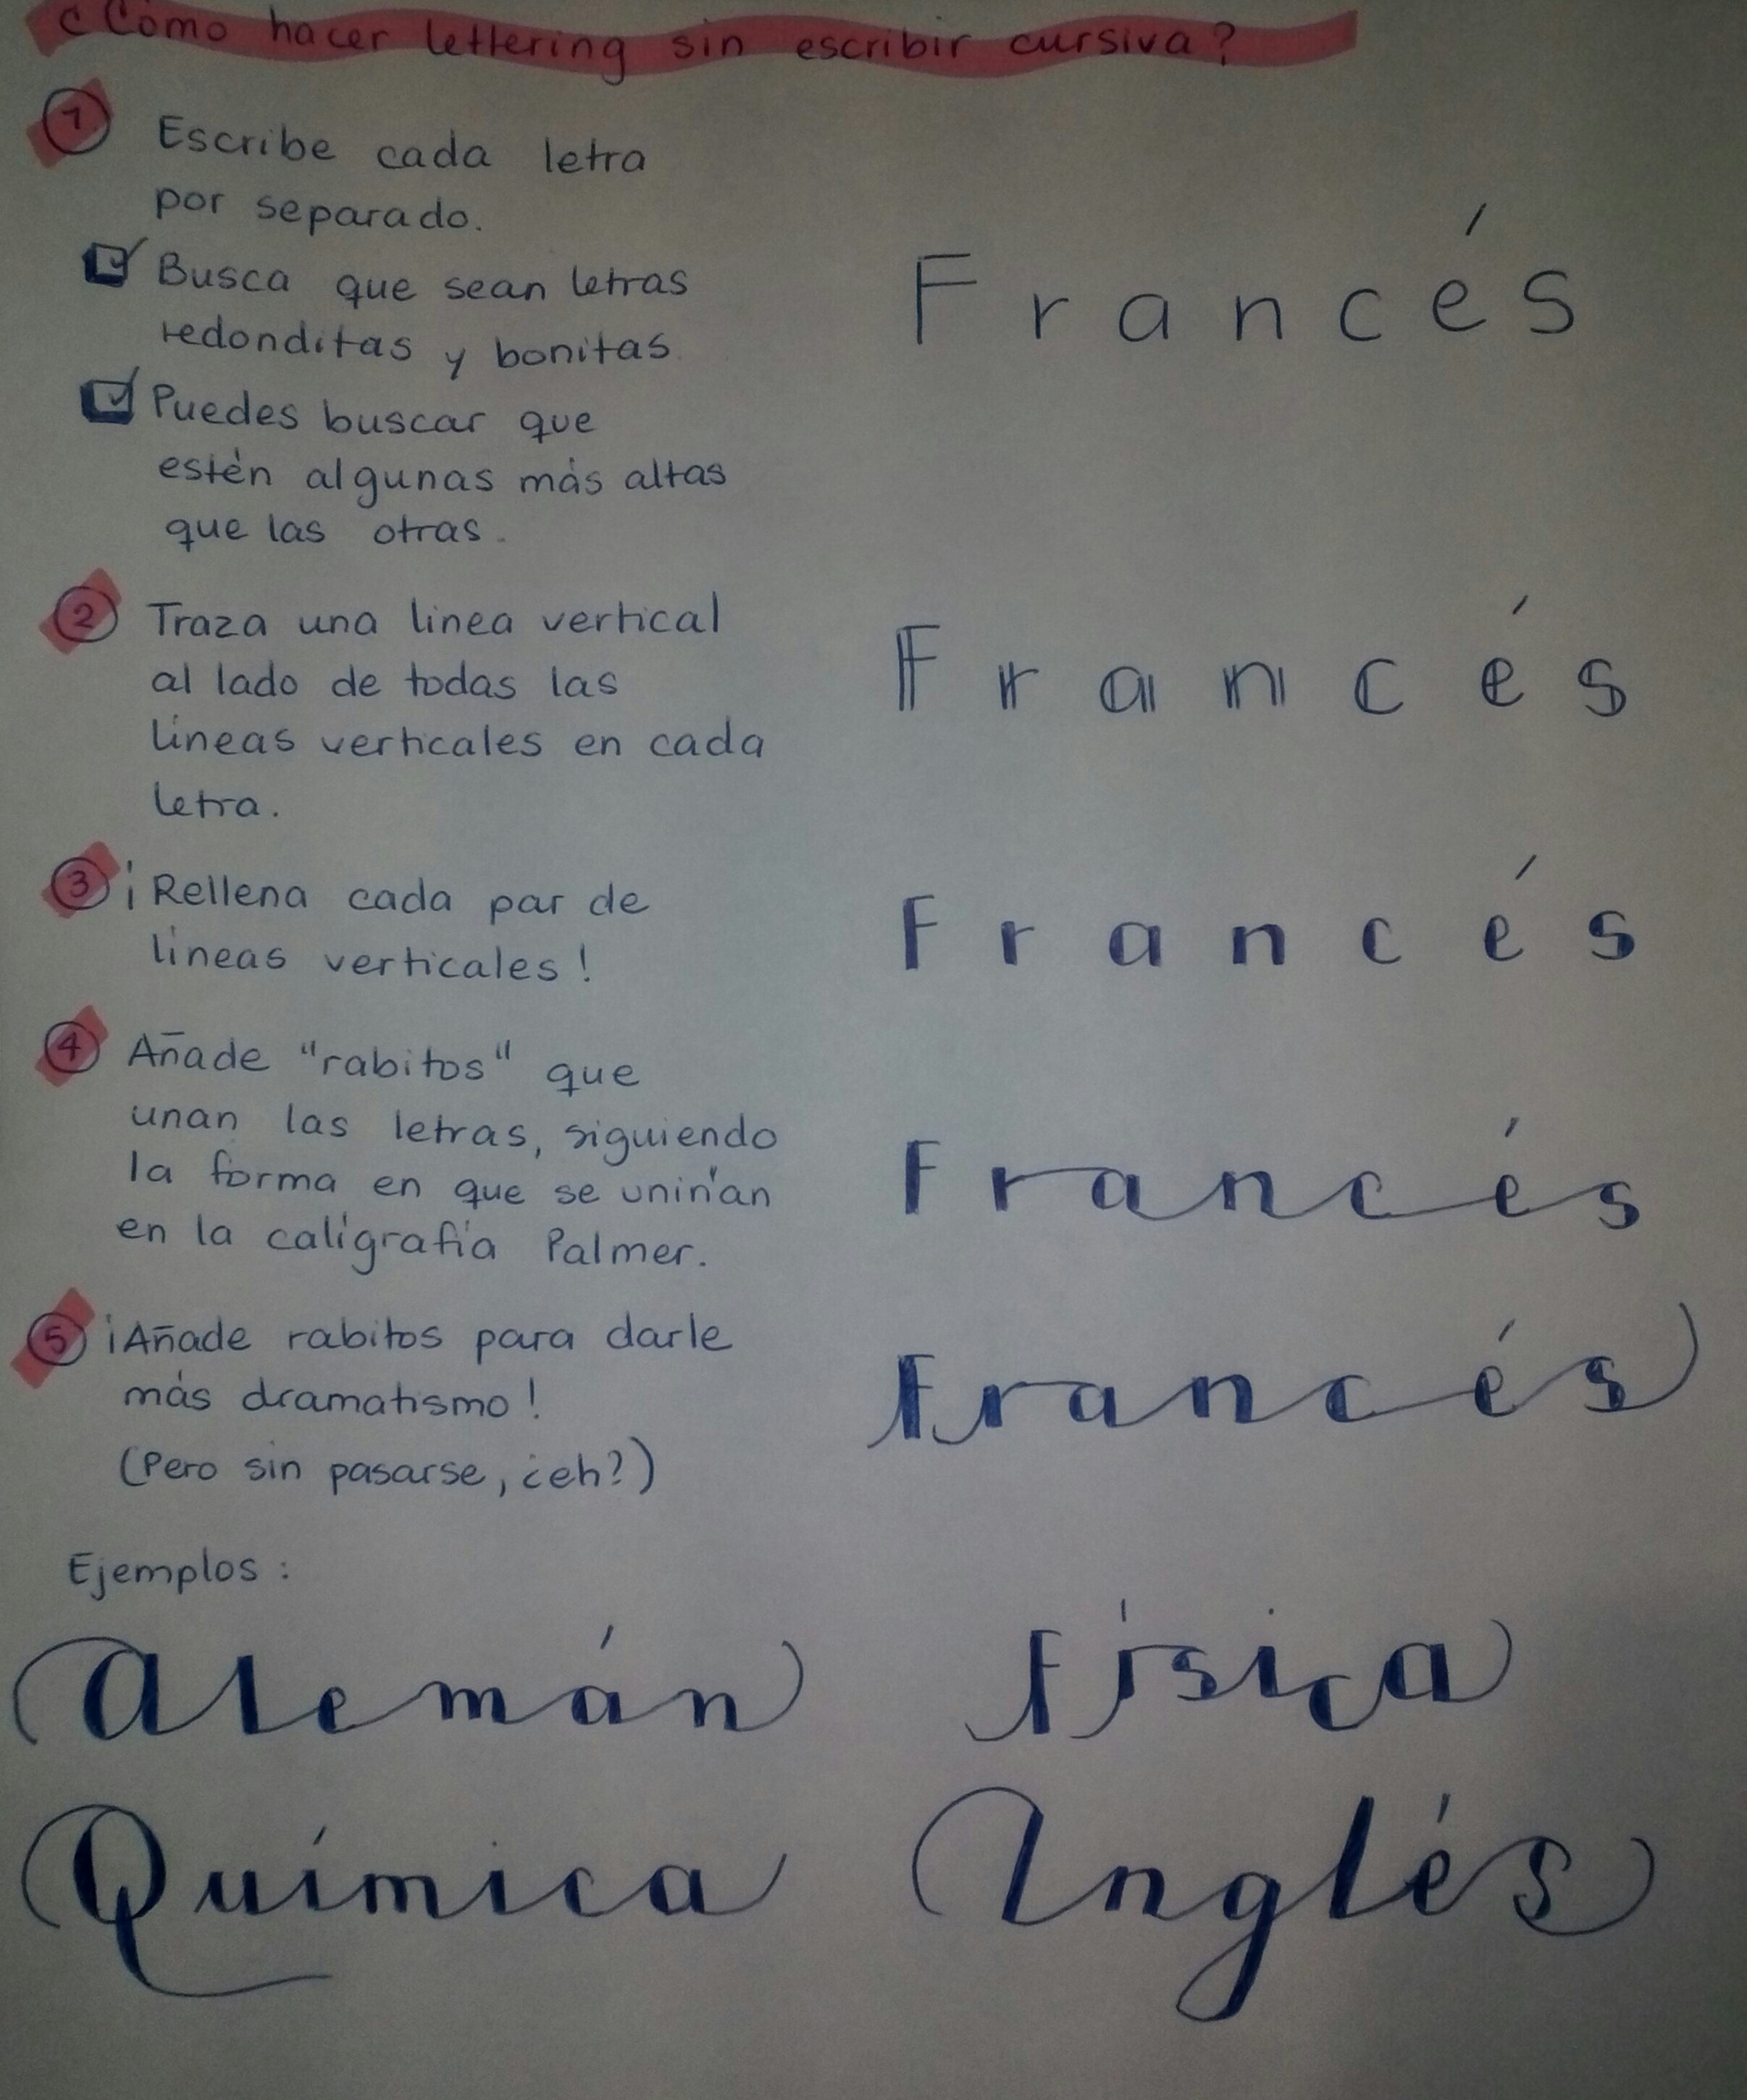 ¿Cómo hacer lettering sin escribir cursiva?
1 Escribe cada letra
por separado.
Busca que sean letras
redonditas y bonitas.
Puedes buscar que
estén algunas más altas
que las otras.
Francés
2 Traza una línea vertical
al lado de todas las
líneas verticales en cada
letra.
Francés
3 ¡Rellena cada par de
líneas verticales!
Francés
4 Añade "rabitos" que
unan las letras, siguiendo
la forma en que se unirían
en la caligrafía Palmer.
Francés
5 ¡Añade rabitos para darle
más dramatismo!
(Pero sin pasarse, ¿eh?)
Francés
Ejemplos:
Alemán Física
Química Inglés